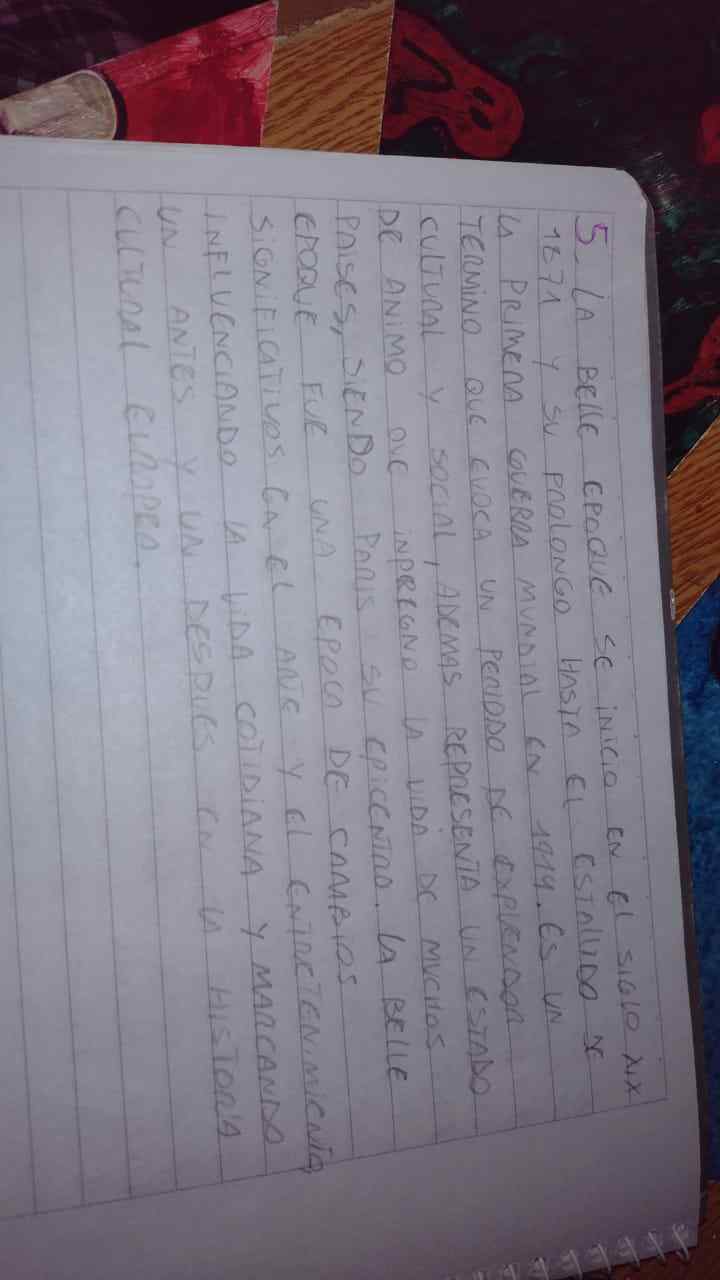 5. LA BELLE EPOQUE SE INICIO EN EL SIGLO XIX
1871 Y SU PROLONGO HASTA EL ESTALLIDO DE
LA PRIMERA GUERRA MUNDIAL EN 1919. ES UN
TERMINO QUE EVOCA UN PERIODO DE EXPLENDOR
CULTURAL Y SOCIAL, ADEMAS REPRESENTA UN ESTADO
DE ANIMO QUE INPREGNO LA VIDA DE MUCHOS
PAISES, SIENDO PARIS SU EPICENTRO. LA BELLE
EPOQUE FUE UNA EPOCA DE CAMBIOS
SIGNIFICATIVOS EN EL ARTE Y EL ENTRETENIMIENTO
INFLUENCIANDO LA VIDA COTIDIANA Y MARCANDO
UN ANTES Y UN DESPUES EN LA HISTORIA
CULTURAL EUROPEA.